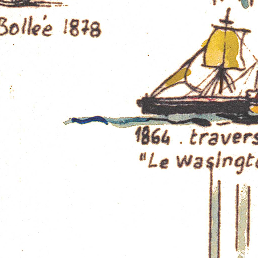 Bollée 1878
1864 . travers
"Le Wasingto